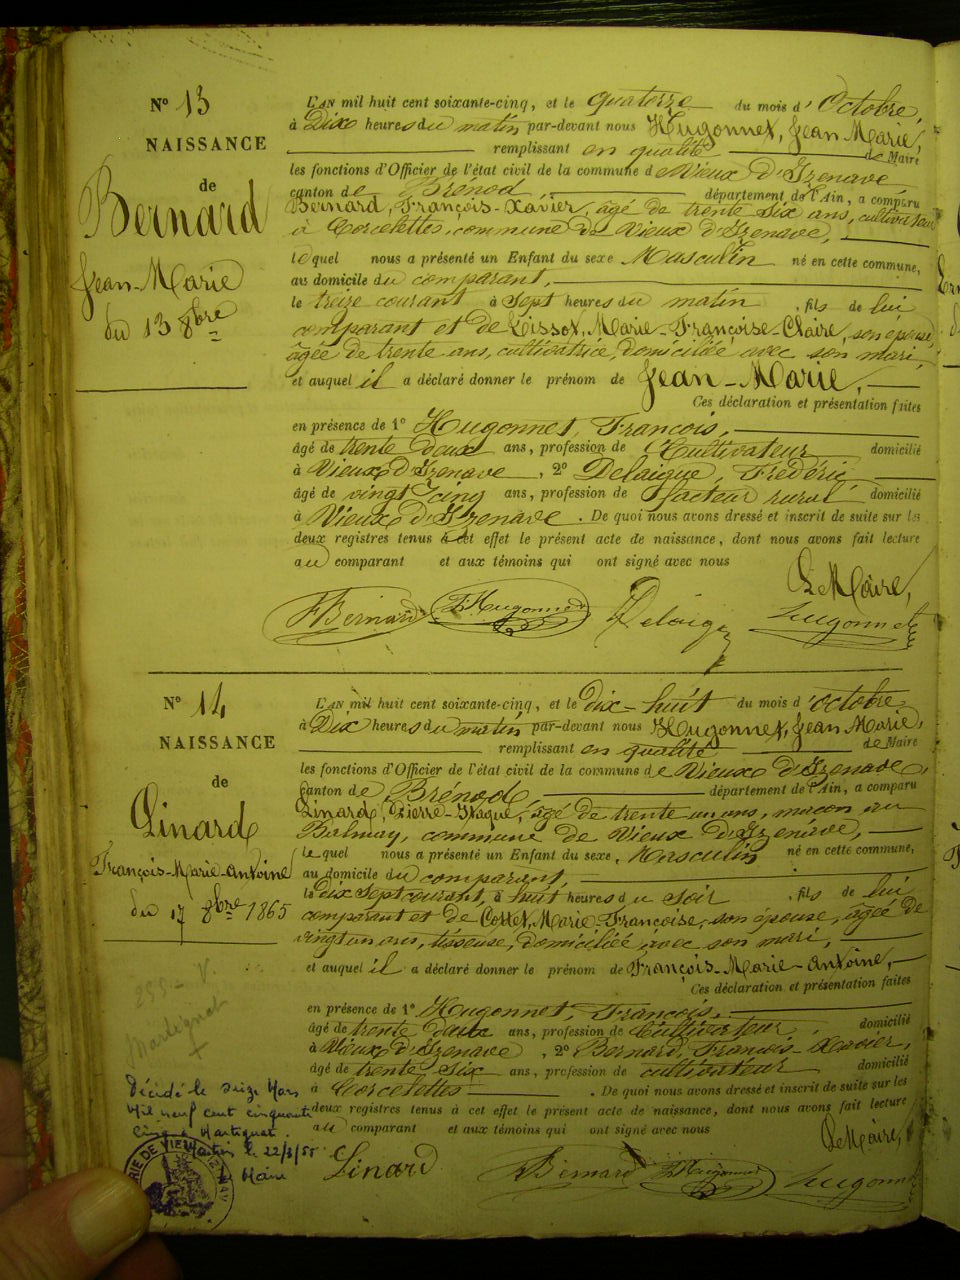 N° 13
NAISSANCE
de
Bernard
Jean-Marie
du 13 8bre
L'AN mil huit cent soixante-cinq, et le quatorze du mois d'Octobre,
à Dix heures du matin par-devant nous Hugonnet, Jean Marie,
remplissant en qualité de Maire
les fonctions d'Officier de l'état civil de la commune de Vieux d'Izenave
canton de Brénod, département de l'Ain, a comparu
Bernard, François-Xavier, âgé de trente Six ans, cultivateur
à Corcelettes, commune de Vieux d'Izenave,
lequel nous a présenté un Enfant du sexe Masculin né en cette commune,
au domicile du comparant,
le treize courant à Sept heures du matin, fils de lui
comparant et de Lissot, Marie-Françoise-Claire, son épouse,
âgée de trente ans, cultivatrice, domiciliée avec son mari,
et auquel il a déclaré donner le prénom de Jean-Marie,
Ces déclaration et présentation faites
en présence de 1° Hugonnet, François,
âgé de trente deux ans, profession de Cultivateur domicilié
à Vieux d'Izenave, 2° Delaigue, Frédéric
âgé de vingt cinq ans, profession de facteur rural domicilié
à Vieux d'Izenave. De quoi nous avons dressé et inscrit de suite sur les
deux registres tenus à cet effet le présent acte de naissance, dont nous avons fait lecture
au comparant et aux témoins qui ont signé avec nous
Le Maire,
F Bernard F. Hugonnet Delaigue Hugonnet
N° 14
NAISSANCE
de
Linard
François-Marie-Antoine
du 17 8bre 1865
L'AN mil huit cent soixante-cinq, et le dix-huit du mois d'octobre
à Dix heures du matin par-devant nous Hugonnet, Jean Marie,
remplissant en qualité de Maire
les fonctions d'Officier de l'état civil de la commune de Vieux d'Izenave,
canton de Brénod département de l'Ain, a comparu
Linard, Pierre-, âgé de trente un ans, maçon au
Balmay, commune de Vieux d'Izenave,
lequel nous a présenté un Enfant du sexe Masculin né en cette commune,
au domicile du comparant,
le dix Sept courant, à huit heures du soir, fils de lui
comparant et de Cottet, Marie-Françoise, son épouse, âgée de
vingt un ans, tisseuse, domiciliée avec son mari,
et auquel il a déclaré donner le prénom de François-Marie-Antoine,
Ces déclaration et présentation faites
en présence de 1° Hugonnet, François,
âgé de trente deux ans, profession de Cultivateur, domicilié
à Vieux d'Izenave, 2° Bernard, François-Xavier,
âgé de trente Six ans, profession de cultivateur domicilié
à Corcelettes. De quoi nous avons dressé et inscrit de suite sur les
deux registres tenus à cet effet le présent acte de naissance, dont nous avons fait lecture
au comparant et aux témoins qui ont signé avec nous
Le Maire,
Linard F Bernard F. Hugonnet Hugonnet
Martignat
Décédé le seize Mars
Mil neuf cent cinquante
cinq à Martignat.
le 22/3/55
Maire